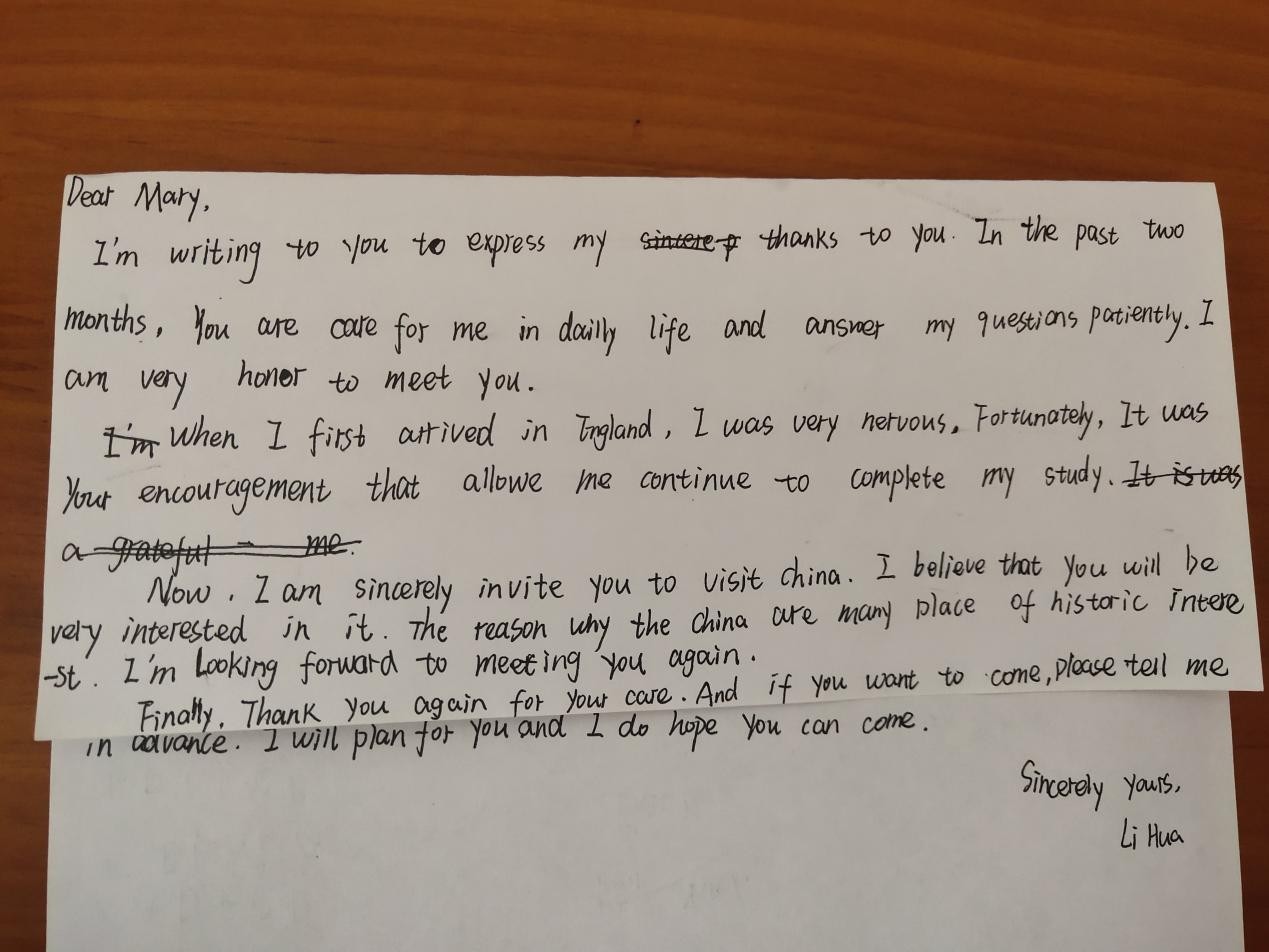 Dear Mary,
I'm writing to you to express my sincere p thanks to you. In the past two
months, You are care for me in dailly life and answer my questions patiently. I
am very honor to meet you.
I'm When I first arrived in England, I was very nervous, Fortunately, It was
Your encouragement that allowe me continue to complete my study. It is was
a grateful me.
Now, I am sincerely invite you to visit china. I believe that you will be
very interested in it. The reason why the china are many place of historic intere
-st. I'm Looking forward to meeting you again.
Finally, Thank you again for your care. And if you want to come, please tell me
in advance. I will plan for you and I do hope you can come.
Sincerely yours,
Li Hua